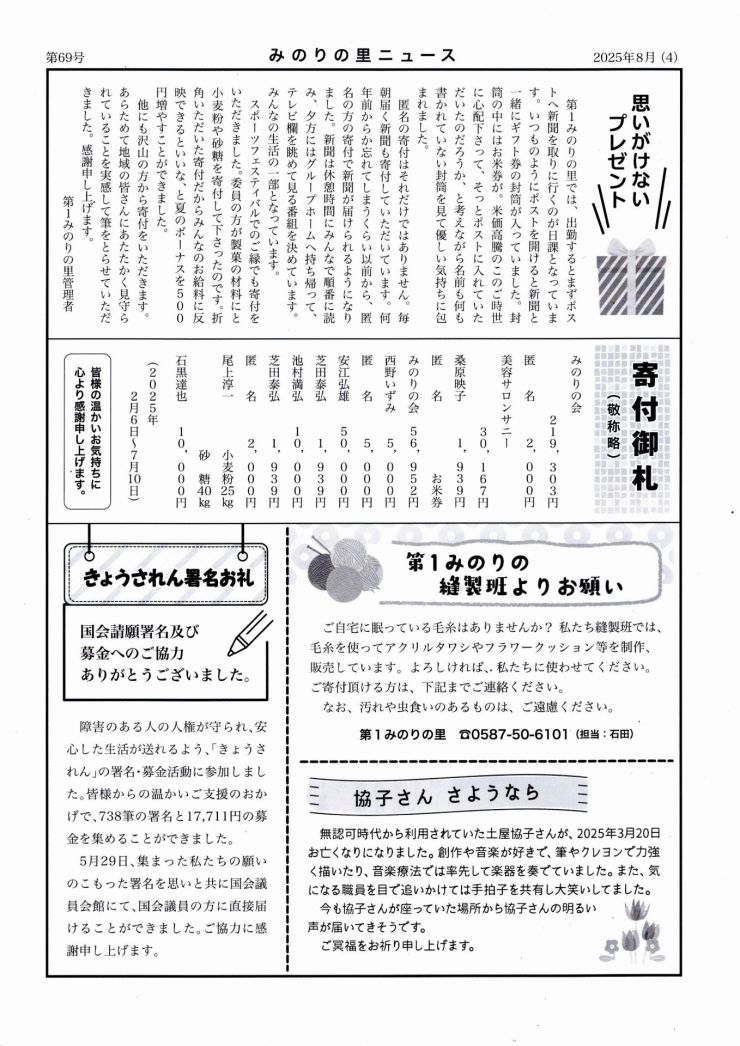 第69号
みのりの里ニュース
2025年8月 (4)
思いがけない
プレゼント
第1みのりの里では、出勤するとまずポス
トへ新聞を取りに行くのが日課となっていま
す。いつものようにポストを開けると新聞と
一緒にギフト券の封筒が入っていました。封
筒の中にはお米券が。米価高騰のこのご時世
に心配下さって、そっとポストに入れていた
だいたのだろうか、と考えながら名前も何も
書かれていない封筒を見て優しい気持ちに包
まれました。
匿名の寄付はそれだけではありません。毎
朝届く新聞も寄付していただいています。何
年前からか忘れてしまうくらい以前から、匿
名の方の寄付で新聞が届けられるようになり
ました。新聞は休憩時間にみんなで順番に読
み、夕方にはグループホームへ持ち帰って、
テレビ欄を眺めて見る番組を決めています。
みんなの生活の一部となっています。
スポーツフェスティバルでのご縁でも寄付を
いただきました。委員の方が製菓の材料にと
小麦粉や砂糖を寄付して下さったのです。折
角いただいた寄付だからみんなのお給料に反
映できるといいな、と夏のボーナスを500
円増やすことができました。
他にも沢山の方から寄付をいただきます。
あらためて地域の皆さんにあたたかく見守ら
れていることを実感して筆をとらせていただ
きました。感謝申し上げます。
第1みのりの里管理者
寄付御札
(敬称略)
みのりの会
219,303円
匿 名 2,000円
美容サロンサニー
30,167円
桑原映子 1,939円
匿 名 お米券
みのりの会 56,952円
西野いずみ 5,000円
匿 名 5,000円
安江弘雄 50,000円
芝田泰弘 1,939円
池村満弘 10,000円
芝田泰弘 1,939円
匿 名 2,000円
尾上淳一 小麦粉25kg
砂 糖40kg
石黒達也 10,000円
(2025年
2月6日～7月10日)
皆様の温かいお気持ちに
心より感謝申し上げます。
きょうされん署名お礼
国会請願署名及び
募金へのご協力
ありがとうございました。
障害のある人の人権が守られ、安
心した生活が送れるよう、「きょうさ
れん」の署名・募金活動に参加しまし
た。皆様からの温かいご支援のおか
げで、738筆の署名と17,711円の募
金を集めることができました。
5月29日、集まった私たちの願い
のこもった署名を思いと共に国会議
員会館にて、国会議員の方に直接届
けることができました。ご協力に感
謝申し上げます。
第1みのりの
縫製班よりお願い
ご自宅に眠っている毛糸はありませんか? 私たち縫製班では、
毛糸を使ってアクリルタワシやフラワークッション等を制作、
販売しています。よろしければ、私たちに使わせてください。
ご寄付頂ける方は、下記までご連絡ください。
なお、汚れや虫食いのあるものは、ご遠慮ください。
第1みのりの里 ☎0587-50-6101 (担当:石田)
協子さん さようなら
無認可時代から利用されていた土屋協子さんが、2025年3月20日
お亡くなりになりました。創作や音楽が好きで、筆やクレヨンで力強
く描いたり、音楽療法では率先して楽器を奏でていました。また、気
になる職員を目で追いかけては手拍子を共有し大笑いしてました。
今も協子さんが座っていた場所から協子さんの明るい
声が届いてきそうです。
ご冥福をお祈り申し上げます。